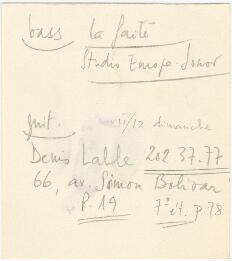 bass la Gaité
Studio Europa-Sonor
guit. 11/12 dimanche
Denis Lable 202 37.77
66, av. Simon Bolivar
P. 19 7e ét. P 78